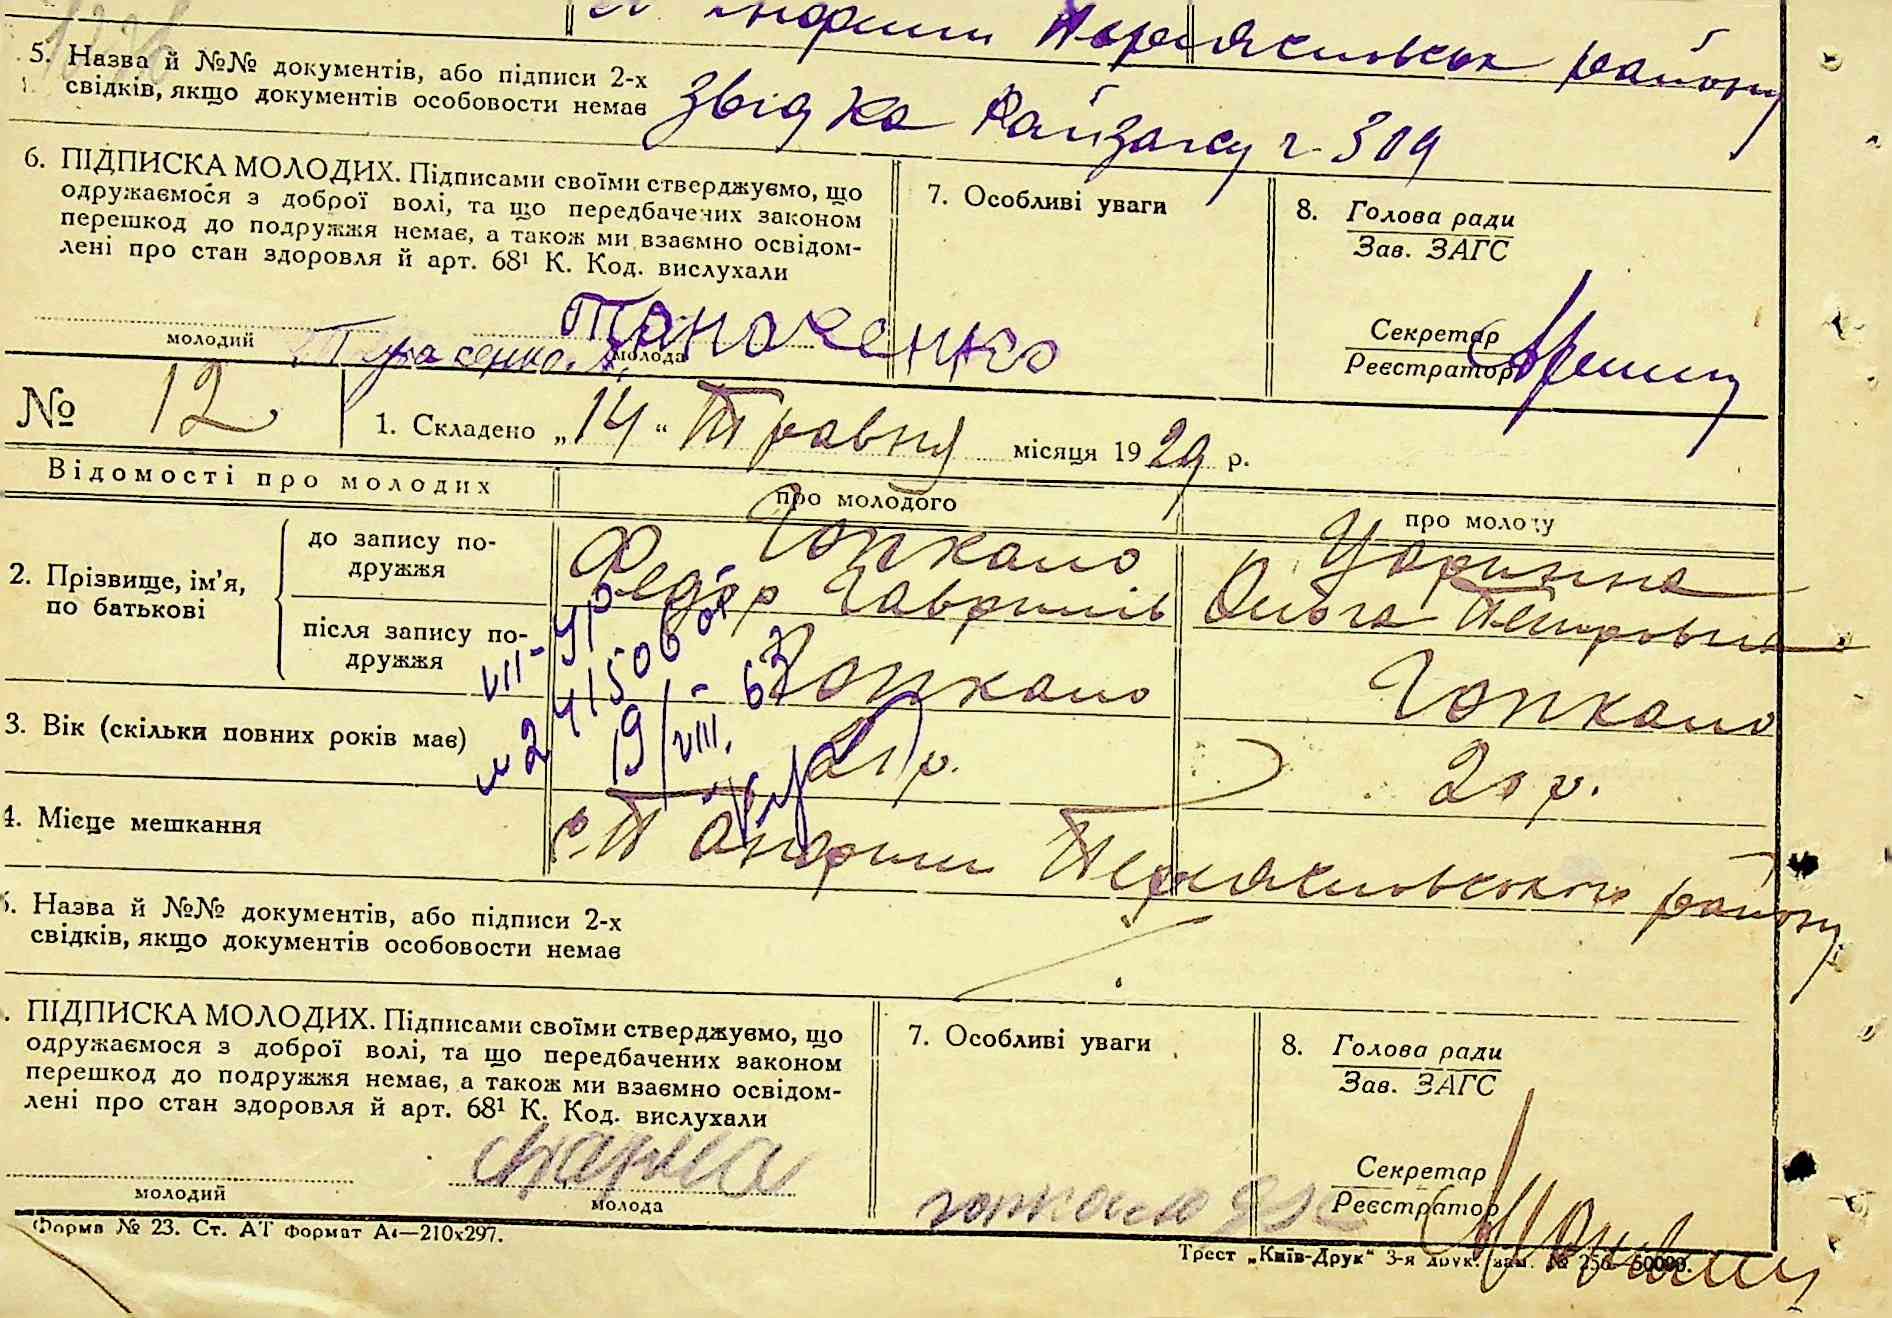 Переяславськ району
5. Назва й №№ документів, або підписи 2-х
свідків, якщо документів особовости немає
Звідка Райзагсу ч. 309
6. ПІДПИСКА МОЛОДИХ. Підписами своїми стверджуємо, що
одружаємося з доброї волі, та що передбачених законом
перешкод до подружжя немає, а також ми взаємно освідом-
лені про стан здоровля й арт. 68¹ К. Код. вислухали
7. Особливі уваги
8. Голова ради
Зав. ЗАГС
Секретар
Реєстратор
молодий
молода
№ 12
1. Складено „14“ Травня місяця 1929 р.
Відомості про молодих
про молодого
про молоду
2. Прізвище, ім'я,
по батькові
до запису по-
дружжя
Гопкало
Федор Гаврилів
Царинна
Ольга Петровна
після запису по-
дружжя
Гопкало
Гопкало
VII-УР
415060
19/VIII. 63
3. Вік (скільки повних років має)
21 р.
20 р.
4. Місце мешкання
с. Панфили Переяславського району
5. Назва й №№ документів, або підписи 2-х
свідків, якщо документів особовости немає
. ПІДПИСКА МОЛОДИХ. Підписами своїми стверджуємо, що
одружаємося з доброї волі, та що передбачених законом
перешкод до подружжя немає, а також ми взаємно освідом-
лені про стан здоровля й арт. 68¹ К. Код. вислухали
7. Особливі уваги
8. Голова ради
Зав. ЗАГС
Секретар
Реєстратор
молодий
молода
гопкало
Форма № 23. Ст. АТ формат А4—210х297.
Трест „Київ-Друк“ 3-я друк. зам. № 256—50000.